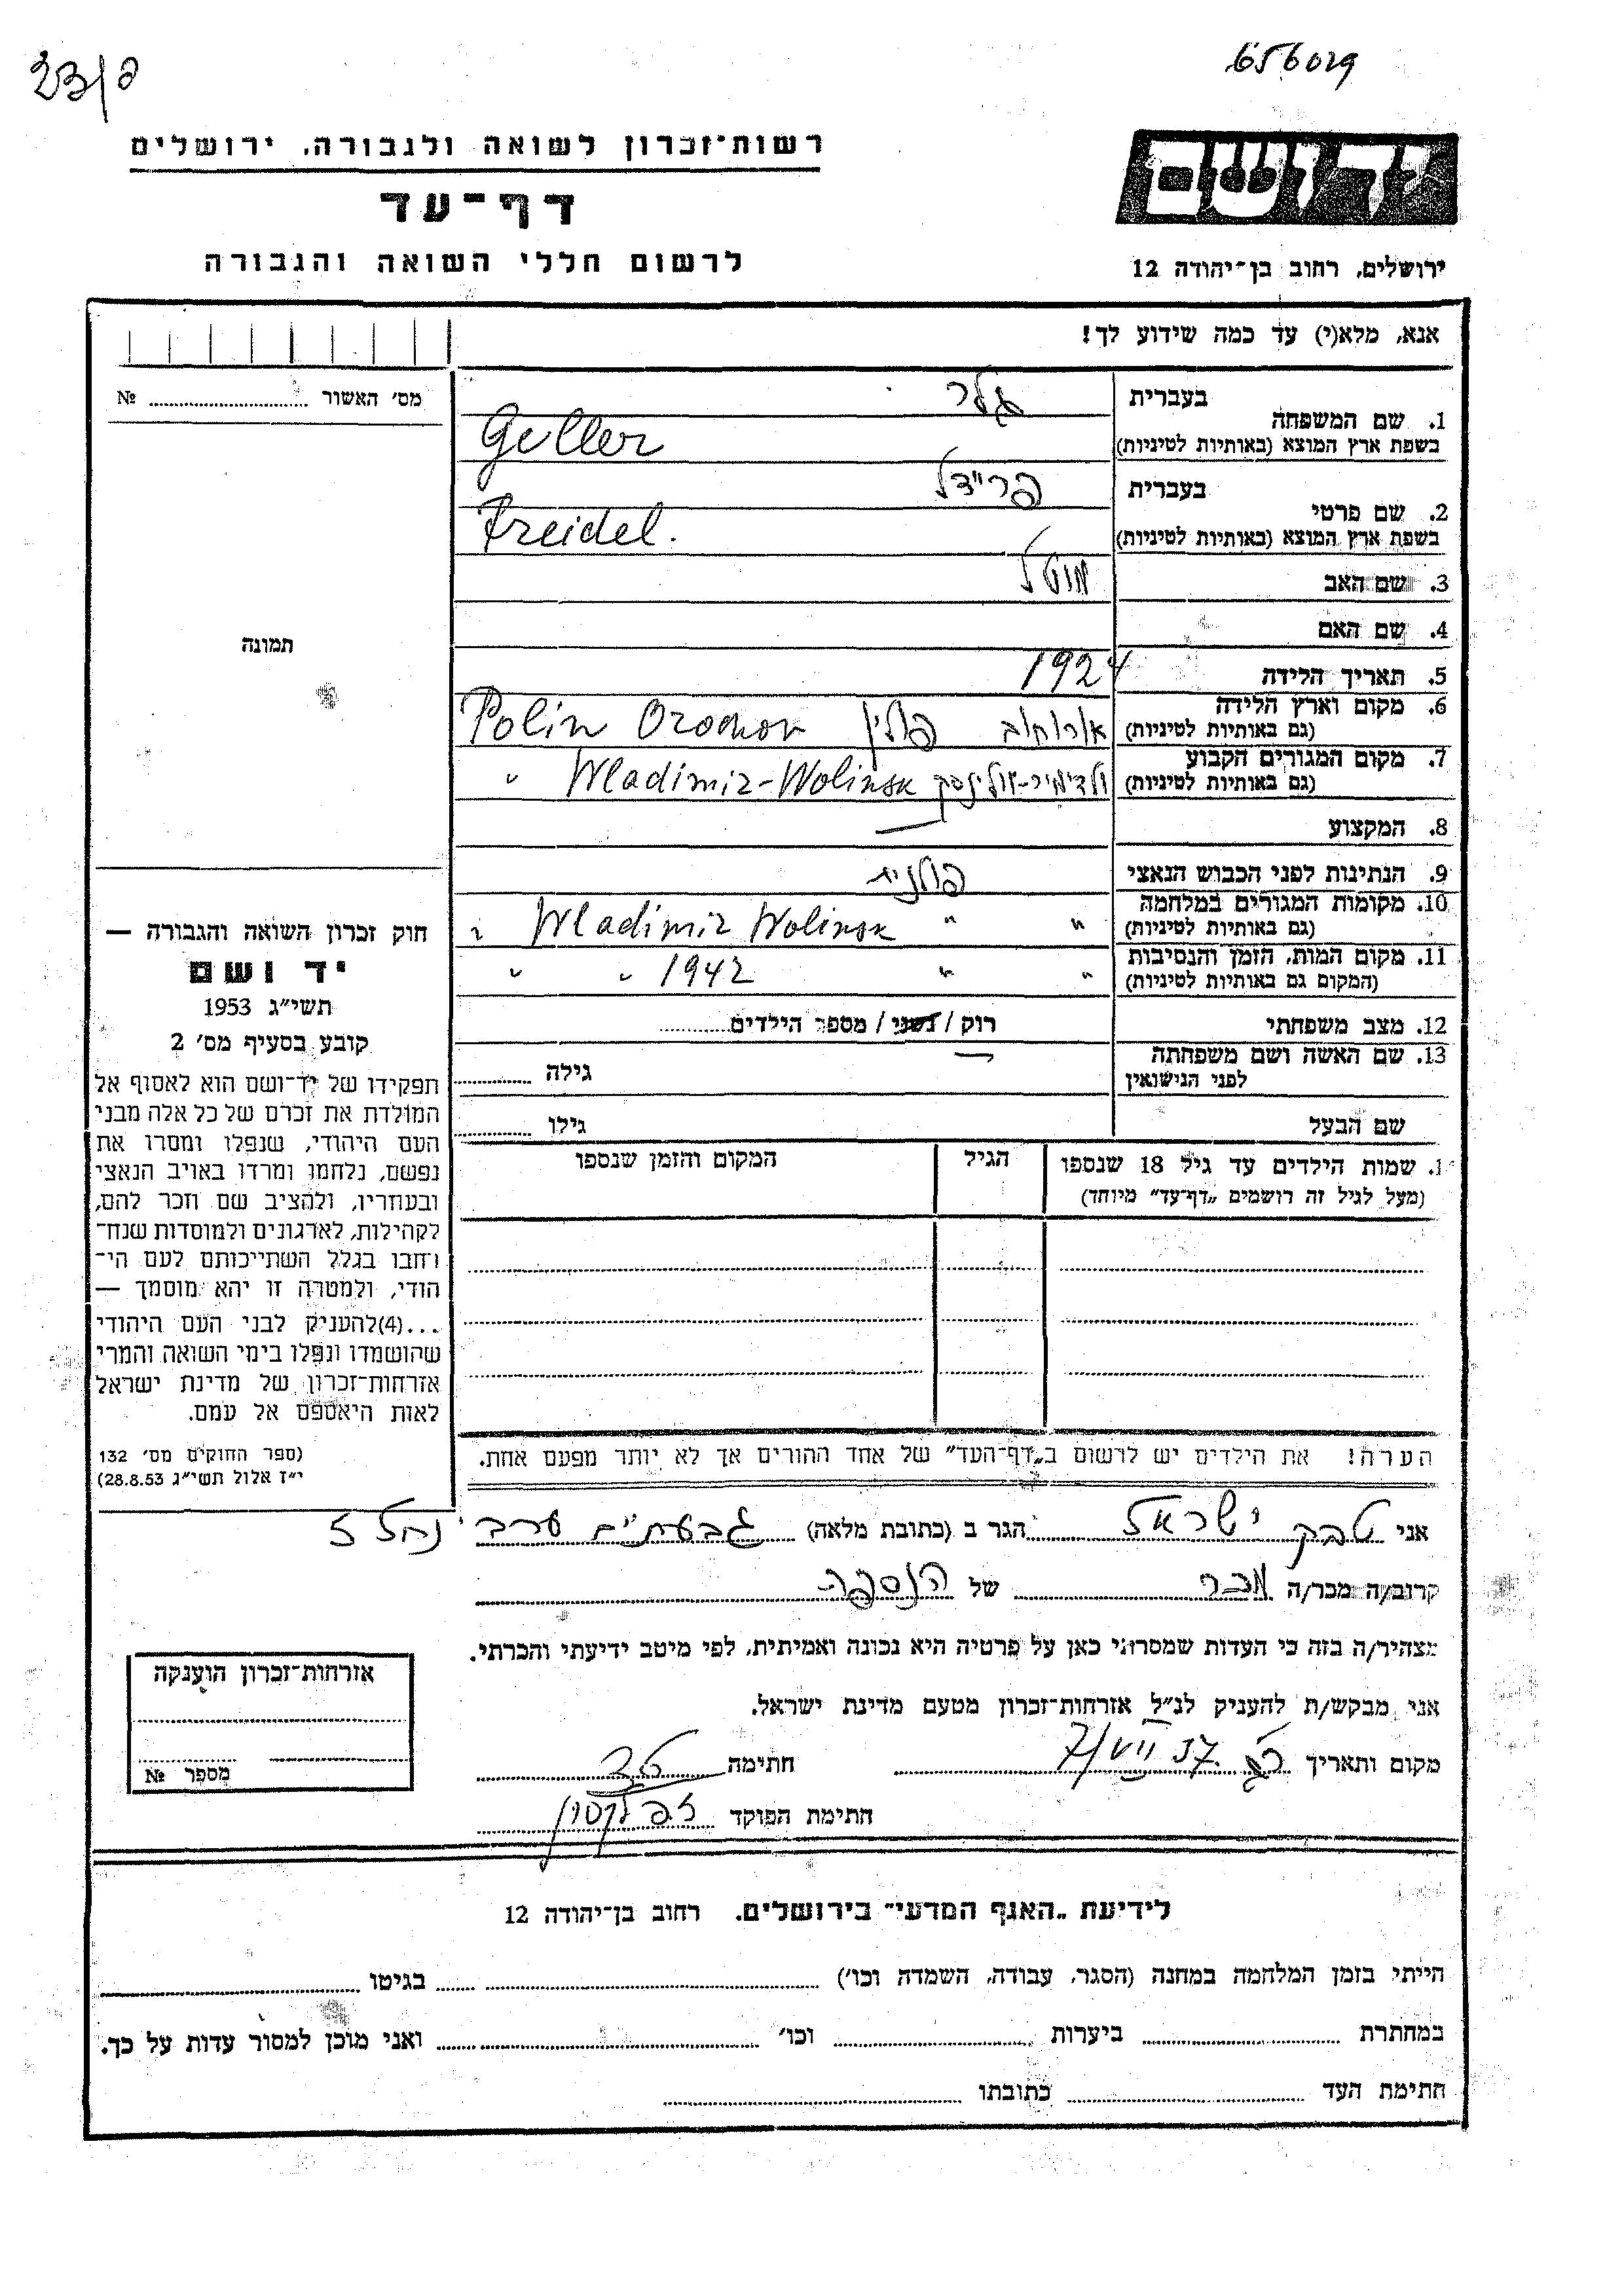 656029
23/פ
רשות־זכרון לשואה ולגבורה, ירושלים
דף־עד
לרשום חללי השואה והגבורה
יד ושם
ירושלים, רחוב בן־יהודה 12
אנא, מלא(י) עד כמה שידוע לך!
מס׳ האשור № 
תמונה
חוק זכרון השואה והגבורה —
יד ושם
תשי״ג 1953
קובע בסעיף מס׳ 2
תפקידו של יד־ושם הוא לאסוף אל
המולדת את זכרם של כל אלה מבני
העם היהודי, שנפלו ומסרו את
נפשם, נלחמו ומרדו באויב הנאצי
ובעוזריו, ולהציב שם וזכר להם,
לקהילות, לארגונים ולמוסדות שנח־
רחבו בגלל השתייכותם לעם הי־
הודי, ולמטרה זו יהא מוסמך —
...(4)להעניק לבני העם היהודי
שהושמדו ונפלו בימי השואה והמרי
אזרחות־זכרון של מדינת ישראל
לאות היאספם אל עמם.
(ספר החוקים מס׳ 132
י״ז אלול תשי״ג 28.8.53)
בעברית גלר
1. שם המשפחה
בשפת ארץ המוצא (באותיות לטיניות) Geller
בעברית פריידל
2. שם פרטי
בשפת ארץ המוצא (באותיות לטיניות) Freidel.
3. שם האב מוטל
4. שם האם
5. תאריך הלידה 1924
6. מקום וארץ הלידה
(גם באותיות לטיניות) פולין Polin
7. מקום המגורים הקבוע
(גם באותיות לטיניות) ולדימיר-וולינסק Wladimir-Wolinsk "
8. המקצוע —
9. הנתינות לפני הכבוש הנאצי פולנית
10. מקומות המגורים במלחמה
(גם באותיות לטיניות) " " Wladimir Wolinsk "
11. מקום המות, הזמן והנסיבות
(המקום גם באותיות לטיניות) " " 1942 " "
12. מצב משפחתי רוק / נשוי / מספר הילדים
13. שם האשה ושם משפחתה
לפני הנישואין — גילה
שם הבעל גילו
1. שמות הילדים עד גיל 18 שנספו הגיל המקום והזמן שנספו
(מעל לגיל זה רושמים „דף־עד״ מיוחד)
הערה! את הילדים יש לרשום ב„דף־העד״ של אחד ההורים אך לא יותר מפעם אחת.
אני טבק ישראל הגר ב (כתובת מלאה) גבעתיים ערבי נחל 3
קרוב/ה מכר/ה מכר של הנספה
מצהיר/ה בזה כי העדות שמסרתי כאן על פרטיה היא נכונה ואמיתית, לפי מיטב ידיעתי והכרתי.
אני מבקש/ת להעניק לנ״ל אזרחות־זכרון מטעם מדינת ישראל.
מקום ותאריך חתימה
חתימת הפוקד
אזרחות־זכרון הוענקה
מספר №
לידיעת „האגף המדעי״ בירושלים. רחוב בן־יהודה 12
הייתי בזמן המלחמה במחנה (הסגר, עבודה, השמדה וכו׳) בגיטו
במחתרת ביערות וכו׳ ואני מוכן למסור עדות על כך.
חתימת העד כתובתו